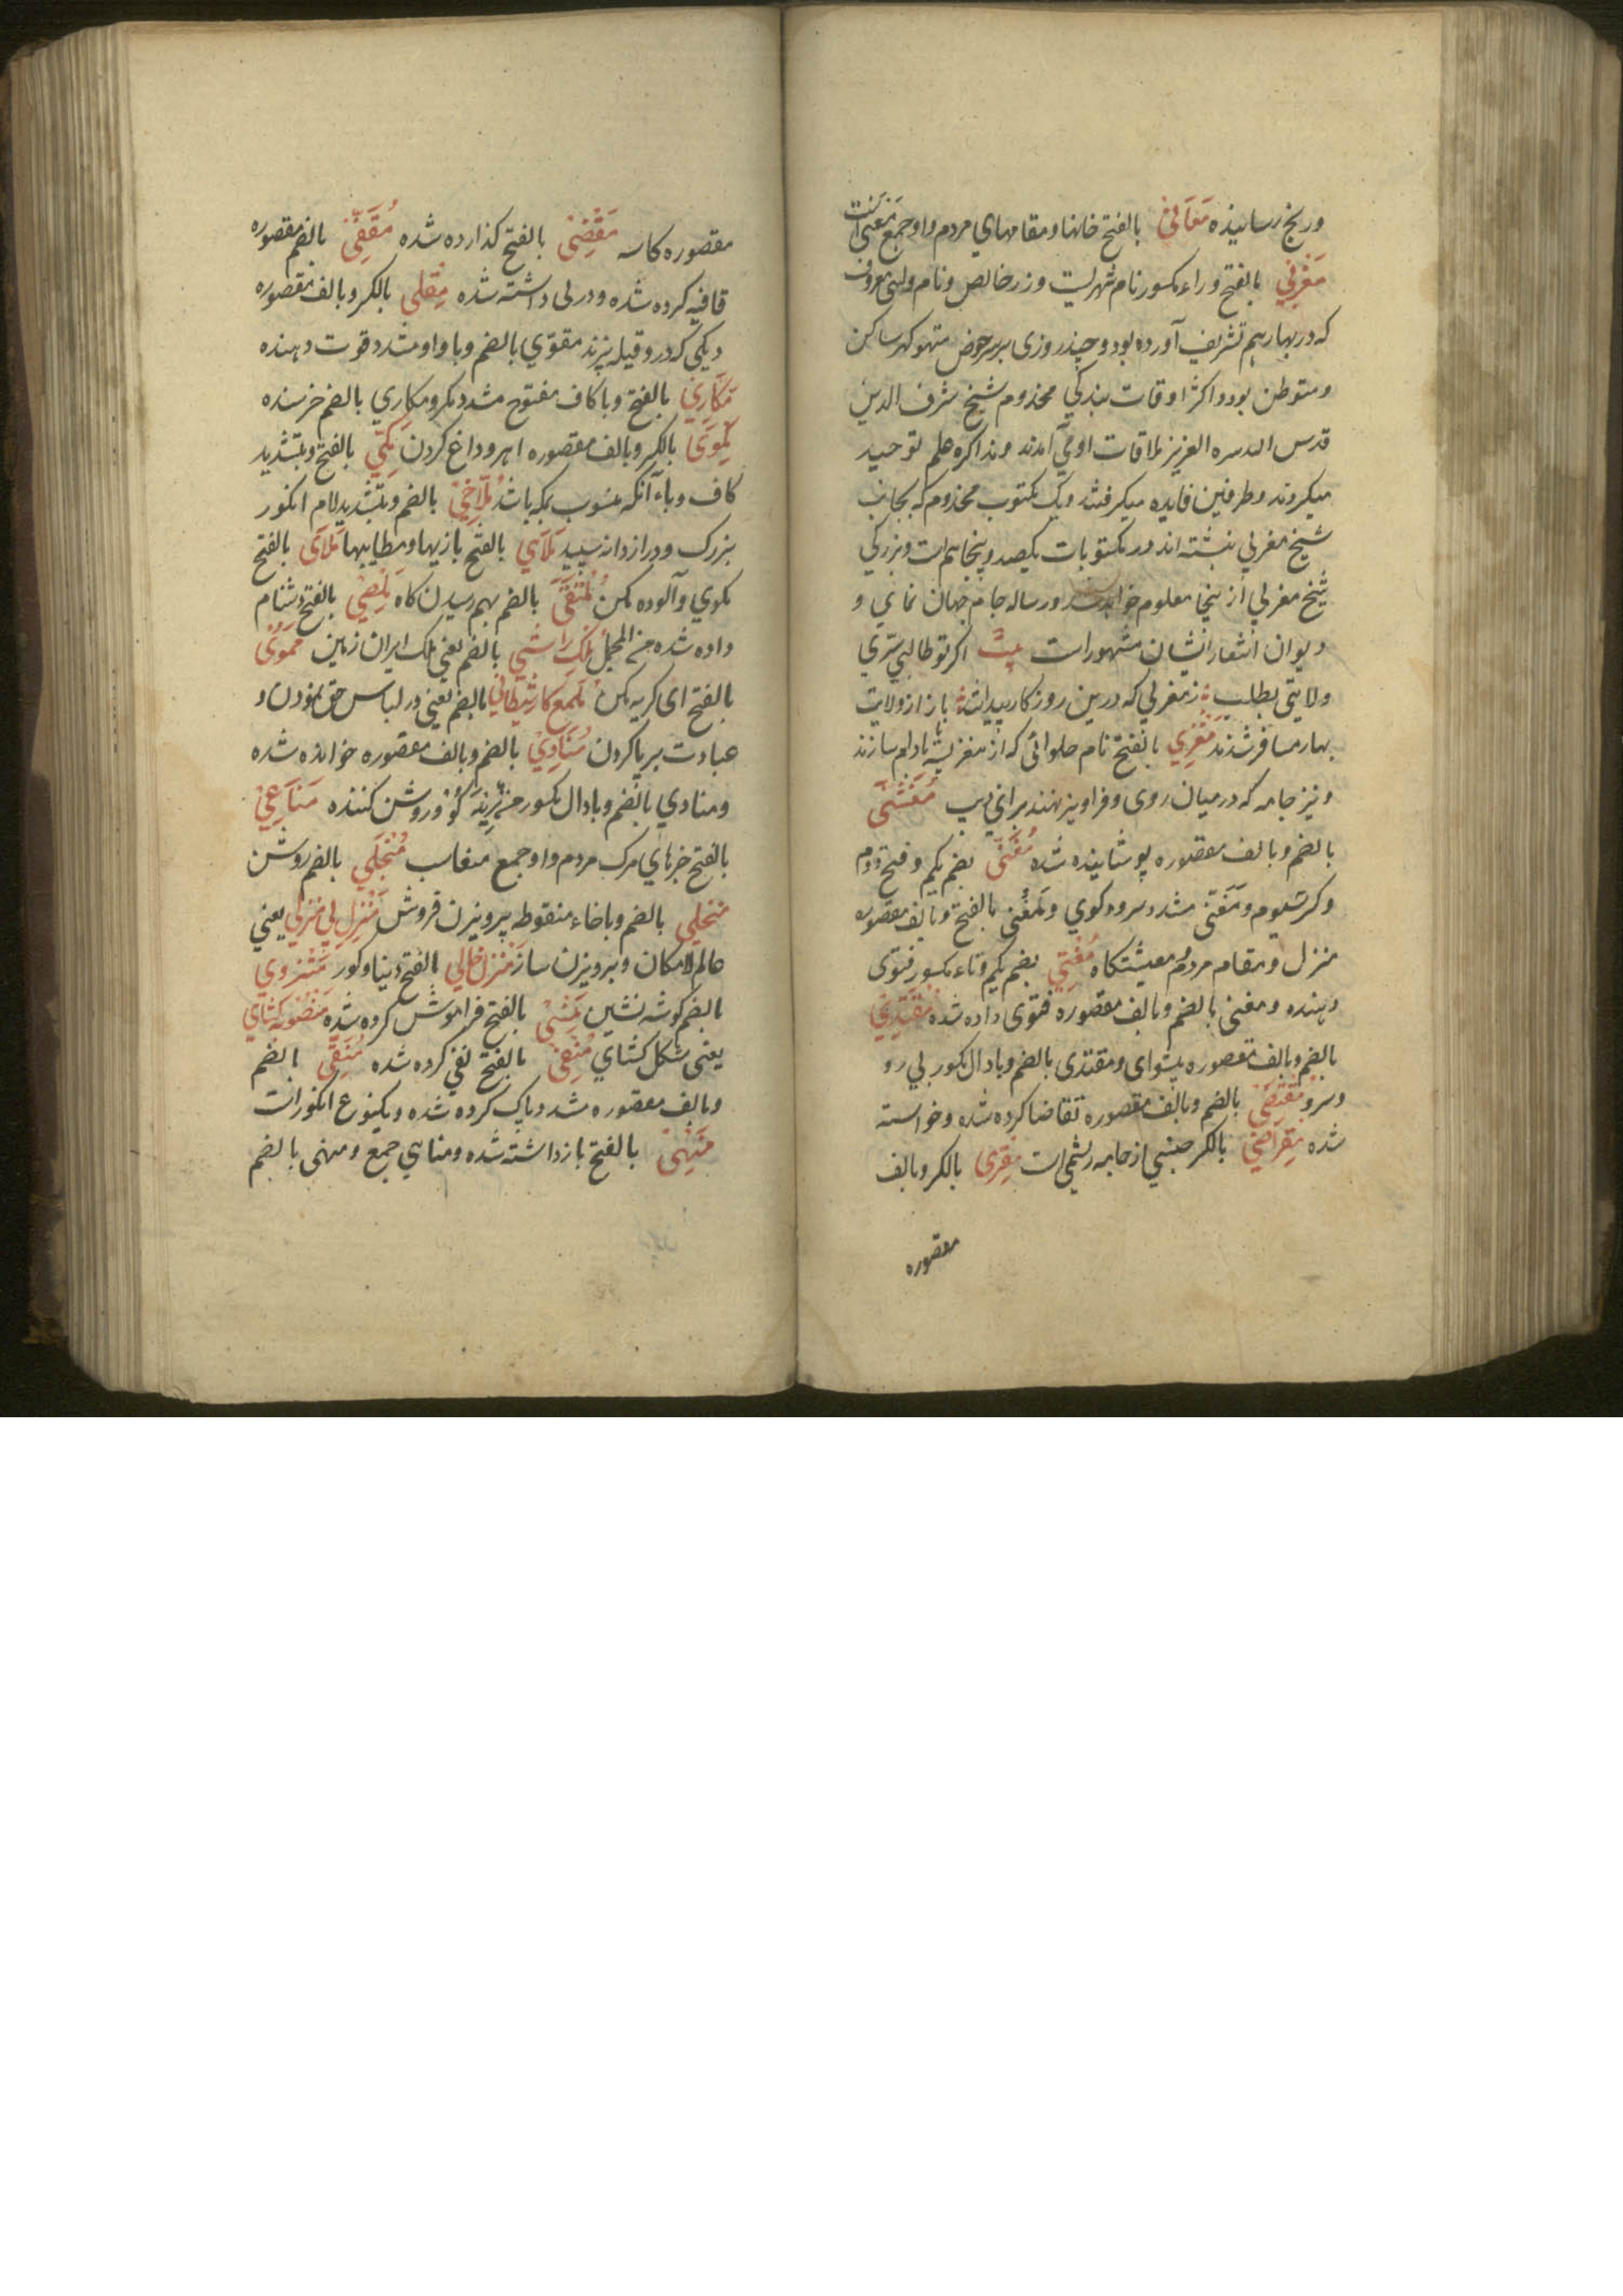 ورنج رسانیده مَغَانِیْ بالفتح خانها و مقامهای مردم واو جمع مغنی است
مَغْرِبِي بالفتح وراء مکسور نام شهریست و زر خالص و نام ولیی معروف
که در بهار هم تشریف آورده بود و چند روزی بر سر حوض ساکن
و متوطن بود و اکثر اوقات بندکی مخدوم شیخ شرف الدین
قدس الله سره العزیز بملاقات او می آمدند و مذاکره علم توحید
میکردند و طرفین فایده میکرفتند و یک مکتوب مخدوم که بجانب
شیخ مغربی نبشته اند در مکتوبات یکصد و پنجاهم است و بزرکی
شیخ مغربی از اینجا معلوم خواهد شد و رساله جام جهان نمای و
دیوان اشعار ایشان مشهور است بیت اکر تو طالب سری
ولایتی بطلب ز مغربی که درین روزکار پیداست باز از ولایت
بهار مسافر شدند مَغْزِي بالفتح نام حلوائی که از مغز پسته یا بادام سازند
و نیز جامه که در میان روی و فراویز نهند برای زیب مُغَشّٰی
بالضم و بالف مقصوره پوشانیده شده مُغَنِّی بضم یکم و فتح دوم
وکسر سیوم و مشدد سرود کوی و مغنی بالفتح و بالف مقصوره
منزل و مقام مردم معیشتکاه مُفْتِي بضم یکم و تاء مکسور فتوی
دهنده و مفتی بالضم و بالف مقصوره فتوی داده شده مُقْتَدِيْ
بالضم و بالف مقصوره پیشوای و مقتدی بالضم و با دال مکسور پی رو
و سرو مُقْتَضِیْ بالضم و بالف مقصوره تقاضا کرده شده و خواسته
شده مِقْرَاضِي بالکسر جنسی از جامه ریشمی است مِقْرٰی بالکسر و بالف
مقصوره
مقصوره کاسه مَقْضِیْ بالفتح کذارده شده مُقَفّٰی بالضم مقصوره
قافیه کرده شده و در پی داشته شده مِقْلٰی بالکسر و بالف مقصوره
دیکی که درو قیله پزند مقوّي بالضم و با واو مشدد قوت دهنده
مَکَّارِيْ بالفتح و با کاف مفتوح مشدد مکر و مکاري بالضم خربنده
بالکسر و بالف مقصوره و داغ کردن مَکِّي بالفتح و بتشدید
کاف و یاء آنکه منسوب بمکه باشد مُلّاخِيْ بالضم و بتشدید لام انکور
بزرک و دراز دانه سپید مَلَاهِي بالفتح بازیها و مطایبها بالفتح
مکوي و آلوده مکن مُلْتَقٰی بالضم بهم رسیدن کاه بالفتح دشنام
داده شده من المجمل بالضم یعنی ملک ایران زمین
بالفتح ای کریه مکن مُلَمَّع کار شَیْطَانِي بالضم یعنی در لباس حق نمودن و
عبادت بریا کردن مُنَادِيْ بالضم و بالف مقصوره خوانده شده
و منادي بالضم و با دال مکسور روشن کننده مَنَاعِيْ
بالفتح خبرهای مرک مردم واو جمع منعاب مُنْجَلِي بالضم روشن
منخلي بالضم و باخاء منقوطه پرویزن فروش مَنْزِلِ بی منزلي یعنی
عالم لامکان و پرویزن ساز مَنْزِل خالي بالفتح دنیا و کور مُنْزَوِي
بالضم کوشه نشین مَنْسِیْ بالفتح فراموش کرده شده مَنْصُوبَه کُشَاي
یعنی شکل کشاي مَنْفِيْ بالفتح نفی کرده شده مُنَقّٰی بالضم
و بالف مقصوره مشدد پاک کرده شده و یکنوع انکورات
مَنْهِیْ بالفتح باز داشته شده و مناهی جمع و منهی بالضم